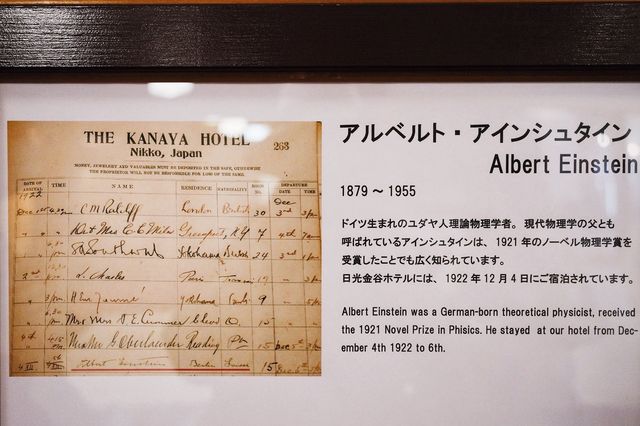 THE KANAYA HOTEL
263
Nikko, Japan
MONEY, JEWELERY AND VALUABLES MUST BE DEPOSITED IN THE SAFE, OTHERWISE
THE PROPRIETOR WILL NOT BE RESPONSIBLE FOR LOSS OF THE SAME.
DATE OF ARRIVAL TIME NAME RESIDENCE NATIONALITY ROOM NO. DEPARTURE DATE TIME
1922 Dec
London British 30 3rd
7 4th
Yokohama British 24 3rd
Paris
Yokohama 9
15
4th Reading Pa 15 Dec 5th
Albert Einstein Berlin 15 Dec 6th
アルベルト・アインシュタイン
Albert Einstein
1879 ～ 1955
ドイツ生まれのユダヤ人理論物理学者。 現代物理学の父とも
呼ばれているアインシュタインは、 1921 年のノーベル物理学賞を
受賞したことでも広く知られています。
日光金谷ホテルには、 1922 年 12 月 4 日にご宿泊されています。
Albert Einstein was a German-born theoretical physicist, received
the 1921 Novel Prize in Phisics. He stayed at our hotel from Dec-
ember 4th 1922 to 6th.